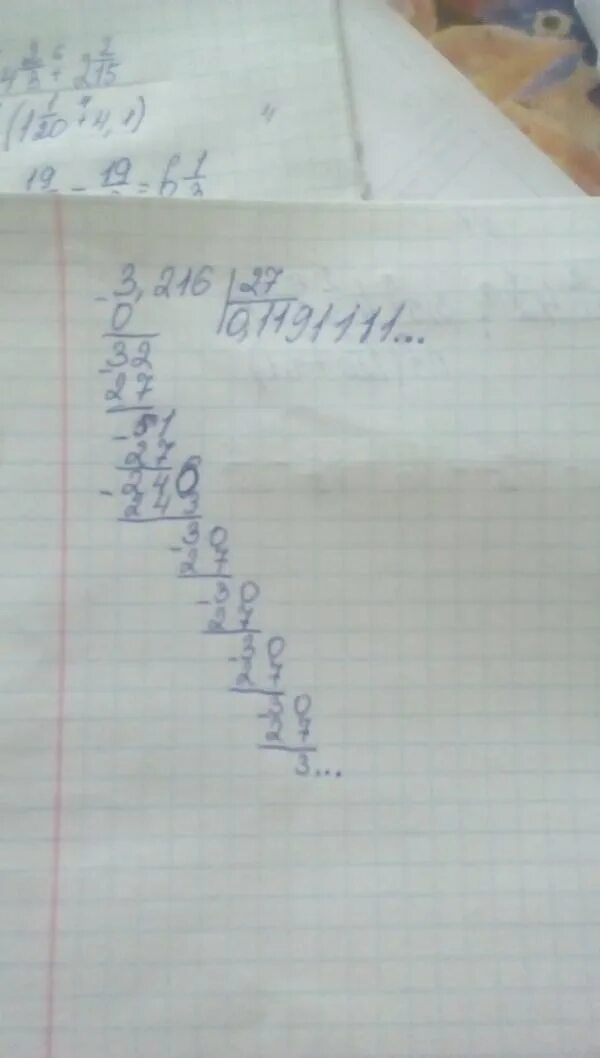 4 3/5 + 2 2/15
(1 1/20 + 4,1)
19 - 19 = 6 1/3
-3,216 | 27
0 0,1191111...
-32
27
-51
27
-240
243
-30
27
-30
27
-30
27
-30
27
3...